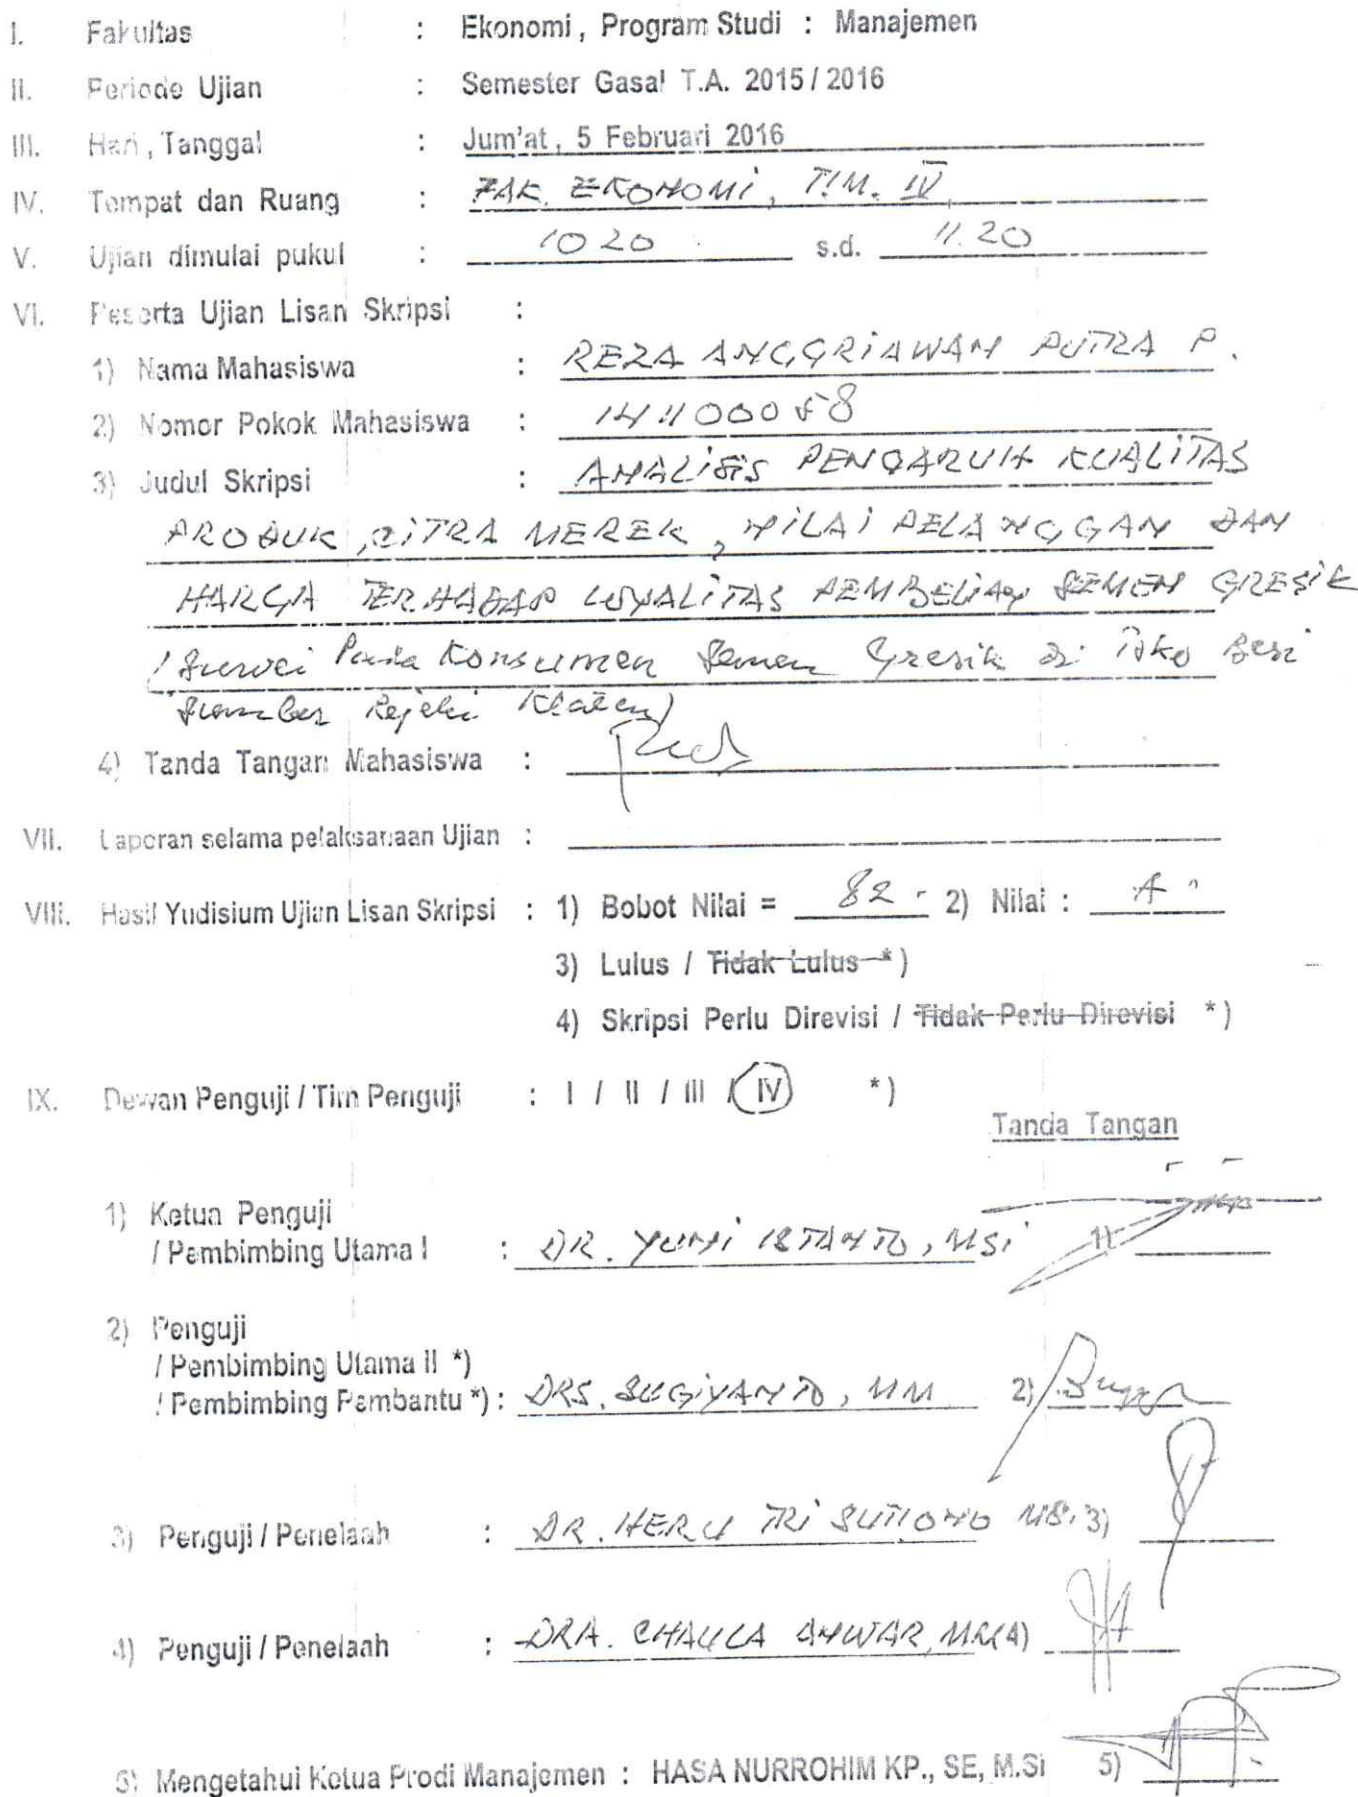 I. Fakultas : Ekonomi, Program Studi : Manajemen
II. Periode Ujian : Semester Gasal T.A. 2015/2016
III. Hari, Tanggal : Jum'at, 5 Februari 2016
IV. Tempat dan Ruang : FAK. EKONOMI, TIM. IV
V. Ujian dimulai pukul : 10 20 s.d. 11.20
VI. Peserta Ujian Lisan Skripsi :
1) Nama Mahasiswa : REZA ANGGRIAWAN PUTRA P.
2) Nomor Pokok Mahasiswa : 141100058
3) Judul Skripsi : ANALISIS PENGARUH KUALITAS
PRODUK, CITRA MEREK, NILAI PELANGGAN DAN
HARGA TERHADAP LOYALITAS PEMBELIAN SEMEN GRESIK
(Survei Pada Konsumen Semen Gresik di Toko Besi
Sumber Rejeki Klaten)
4) Tanda Tangan Mahasiswa :
VII. Laporan selama pelaksanaan Ujian :
VIII. Hasil Yudisium Ujian Lisan Skripsi : 1) Bobot Nilai = 82 2) Nilai : A
3) Lulus / Tidak Lulus *)
4) Skripsi Perlu Direvisi / Tidak Perlu Direvisi *)
IX. Dewan Penguji / Tim Penguji : I / II / III / IV *)
Tanda Tangan
1) Ketua Penguji
/ Pembimbing Utama I : DR. YUNI ISTANTO, MSi 1)
2) Penguji
/ Pembimbing Utama II *)
/ Pembimbing Pembantu *) : DRS. SUGIYANTO, MM 2)
3) Penguji / Penelaah : DR. HERU TRI SUTIONO MS. 3)
4) Penguji / Penelaah : DRA. CHAULA ANWAR, MM 4)
5) Mengetahui Ketua Prodi Manajemen : HASA NURROHIM KP., SE, M.Si 5)